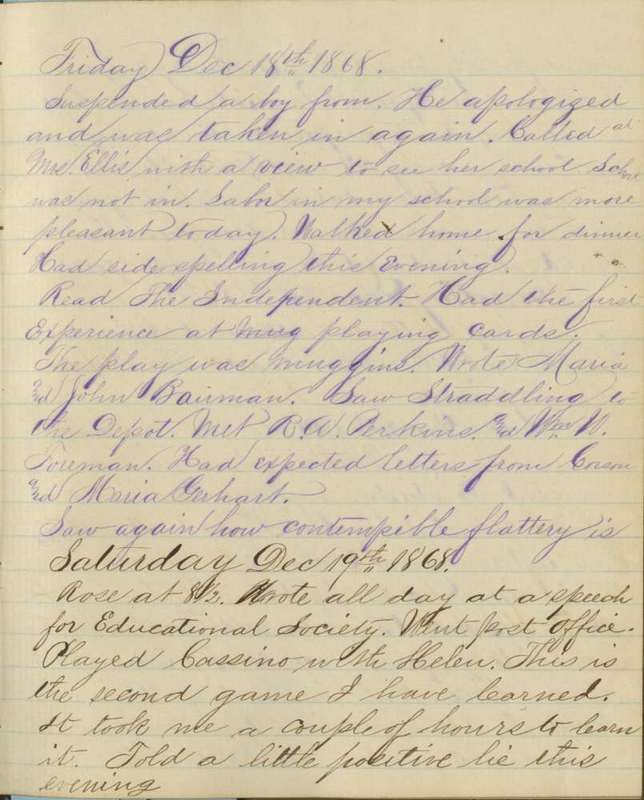 Friday Dec 18th 1868.
Suspended a boy from. He apologized
and was taken in again. Called at
Mrs Ellis with a view to see her school. School
was not in. Labor in my school was more
pleasant today. Walked home for dinner
Had side spelling this evening.
Read The Independent. Had the first
Experience at mug playing cards.
The play was muggins. Wrote Maria
and John Bairman. Saw Straddling to
the Depot. Met R.A. Perkins. and Wm W.
Foreman. Had expected letters from Corson
and Maria Gerhart.
Saw again how contempible flattery is
Saturday Dec 19th 1868.
Rose at 8½. Wrote all day at a speech
for Educational Society. Went post office.
Played Cassino with Helen. This is
the second game I have learned.
It took me a couple of hours to learn
it. Told a little positive lie this
evening